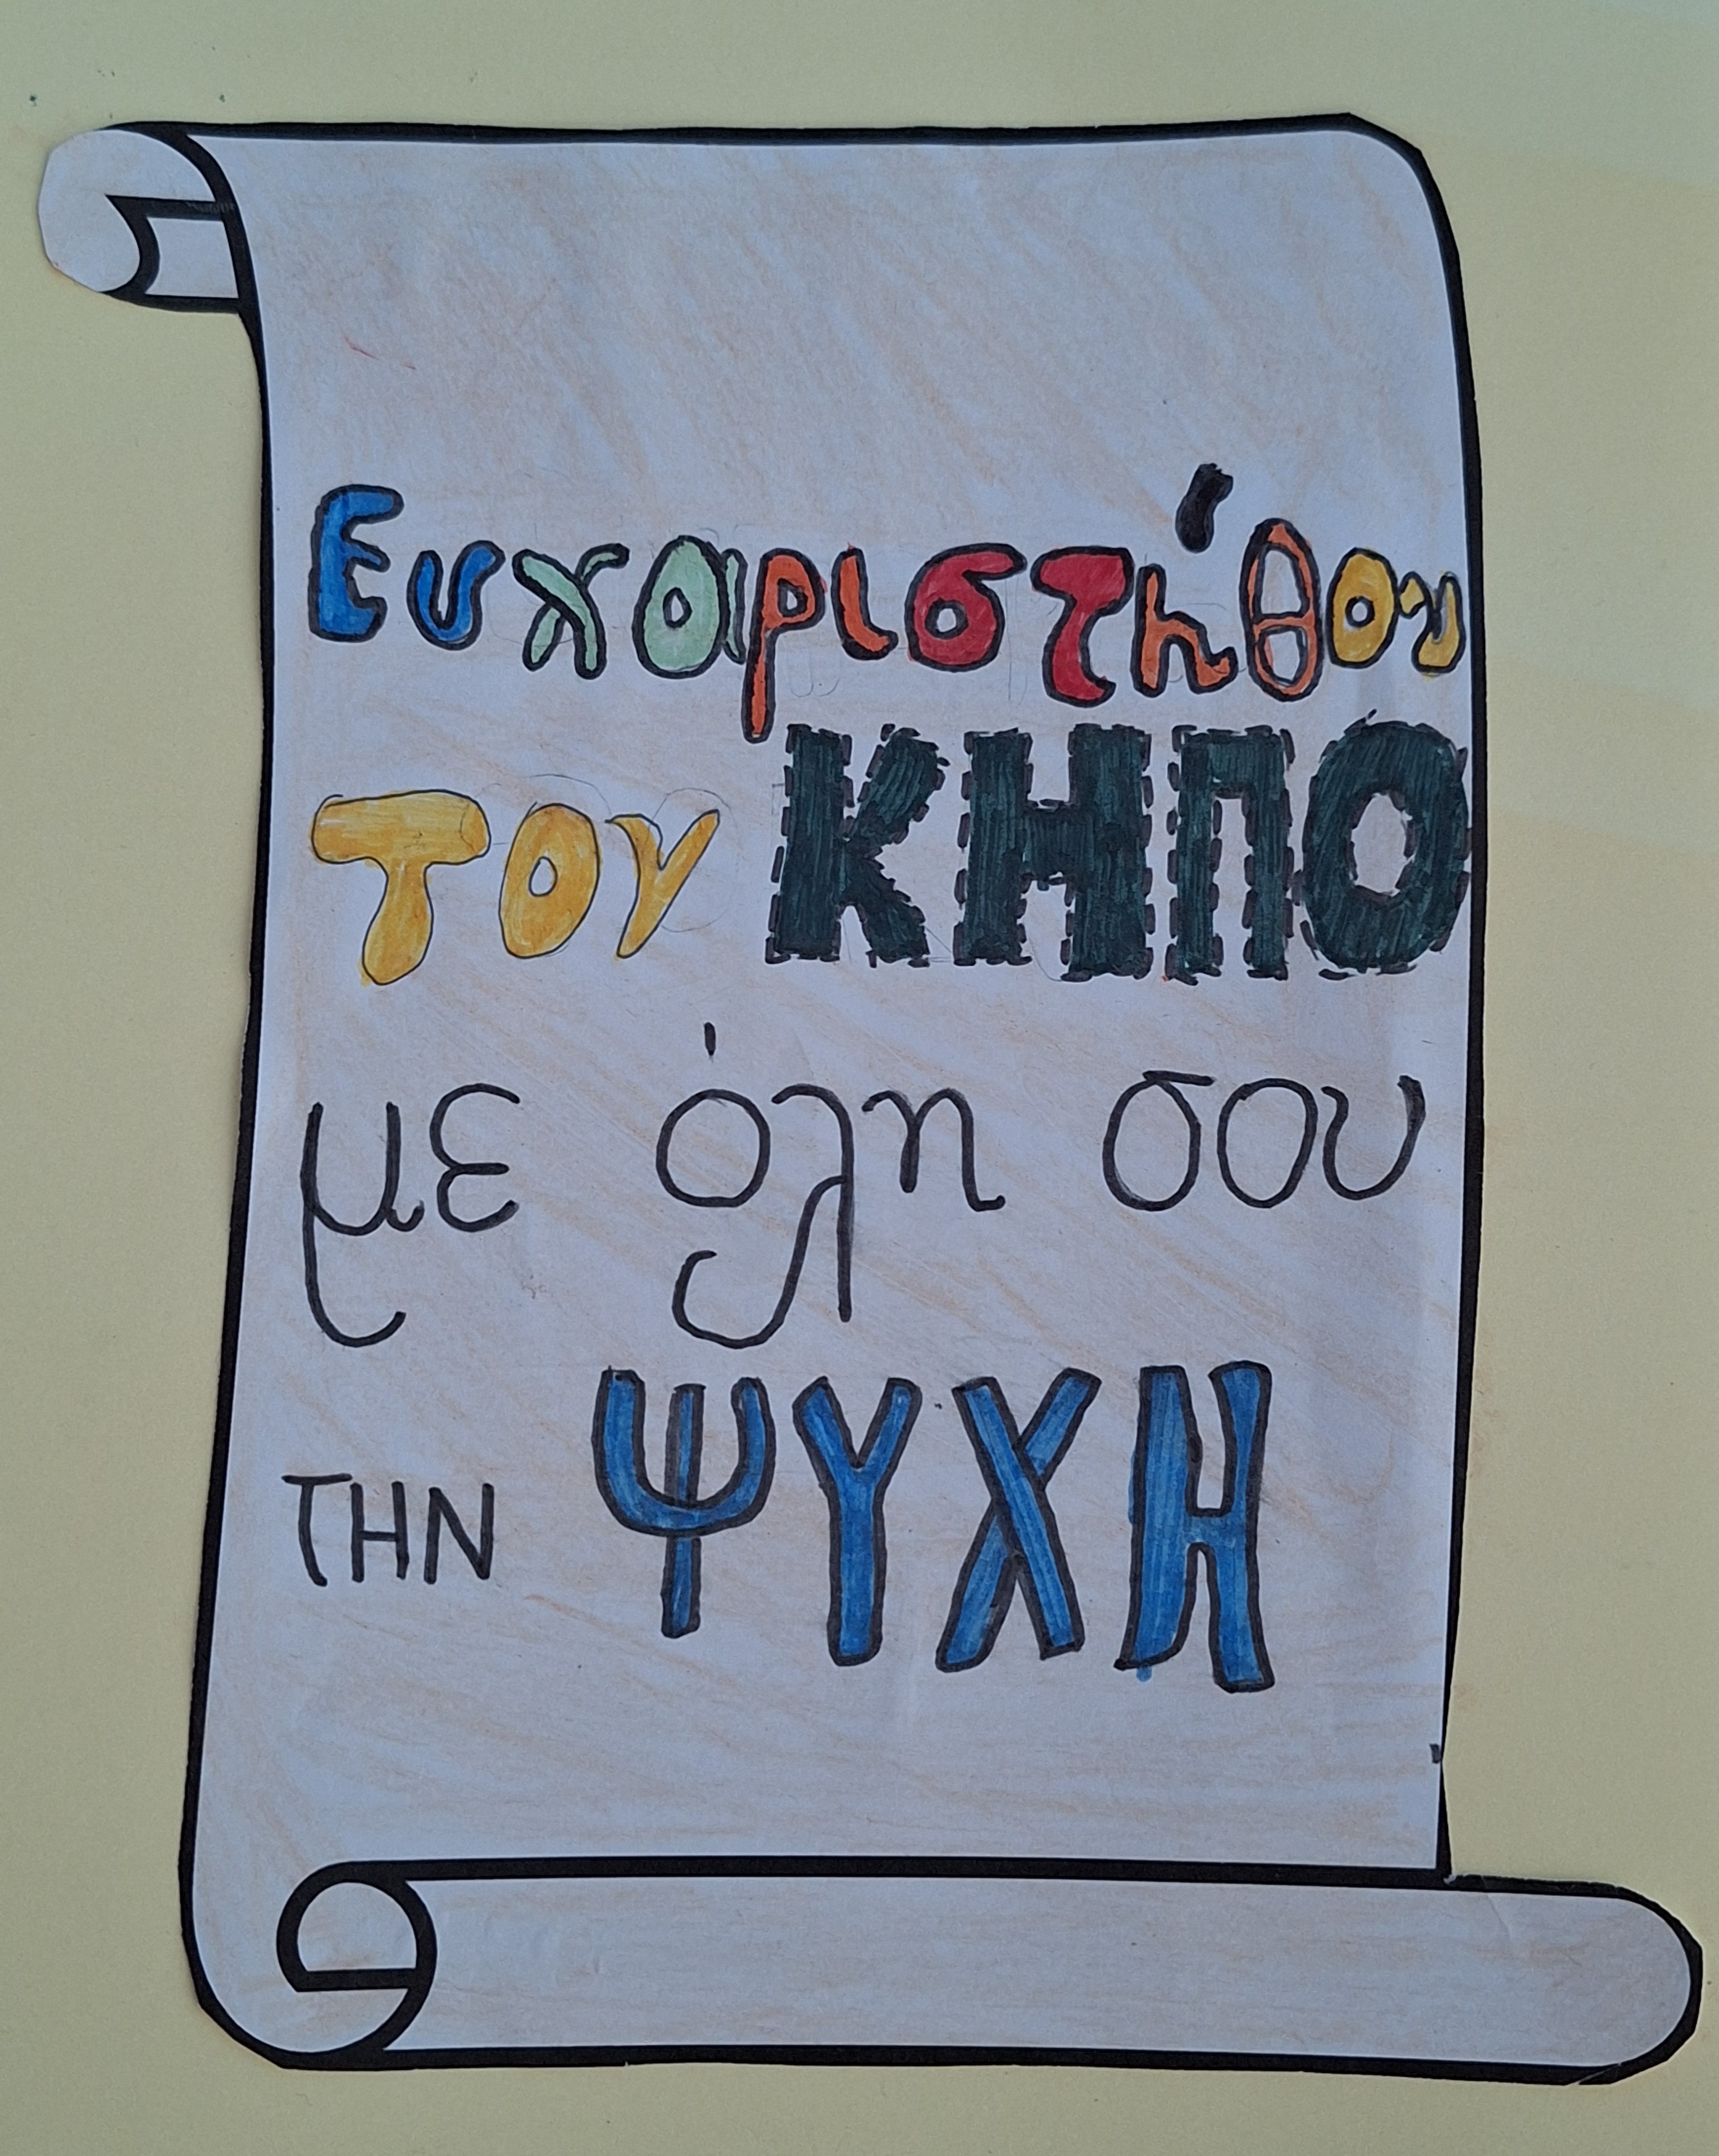 Ευχαριστήθου
τον ΚΗΠΟ
με όλη σου
ΤΗΝ ΨΥΧΗ